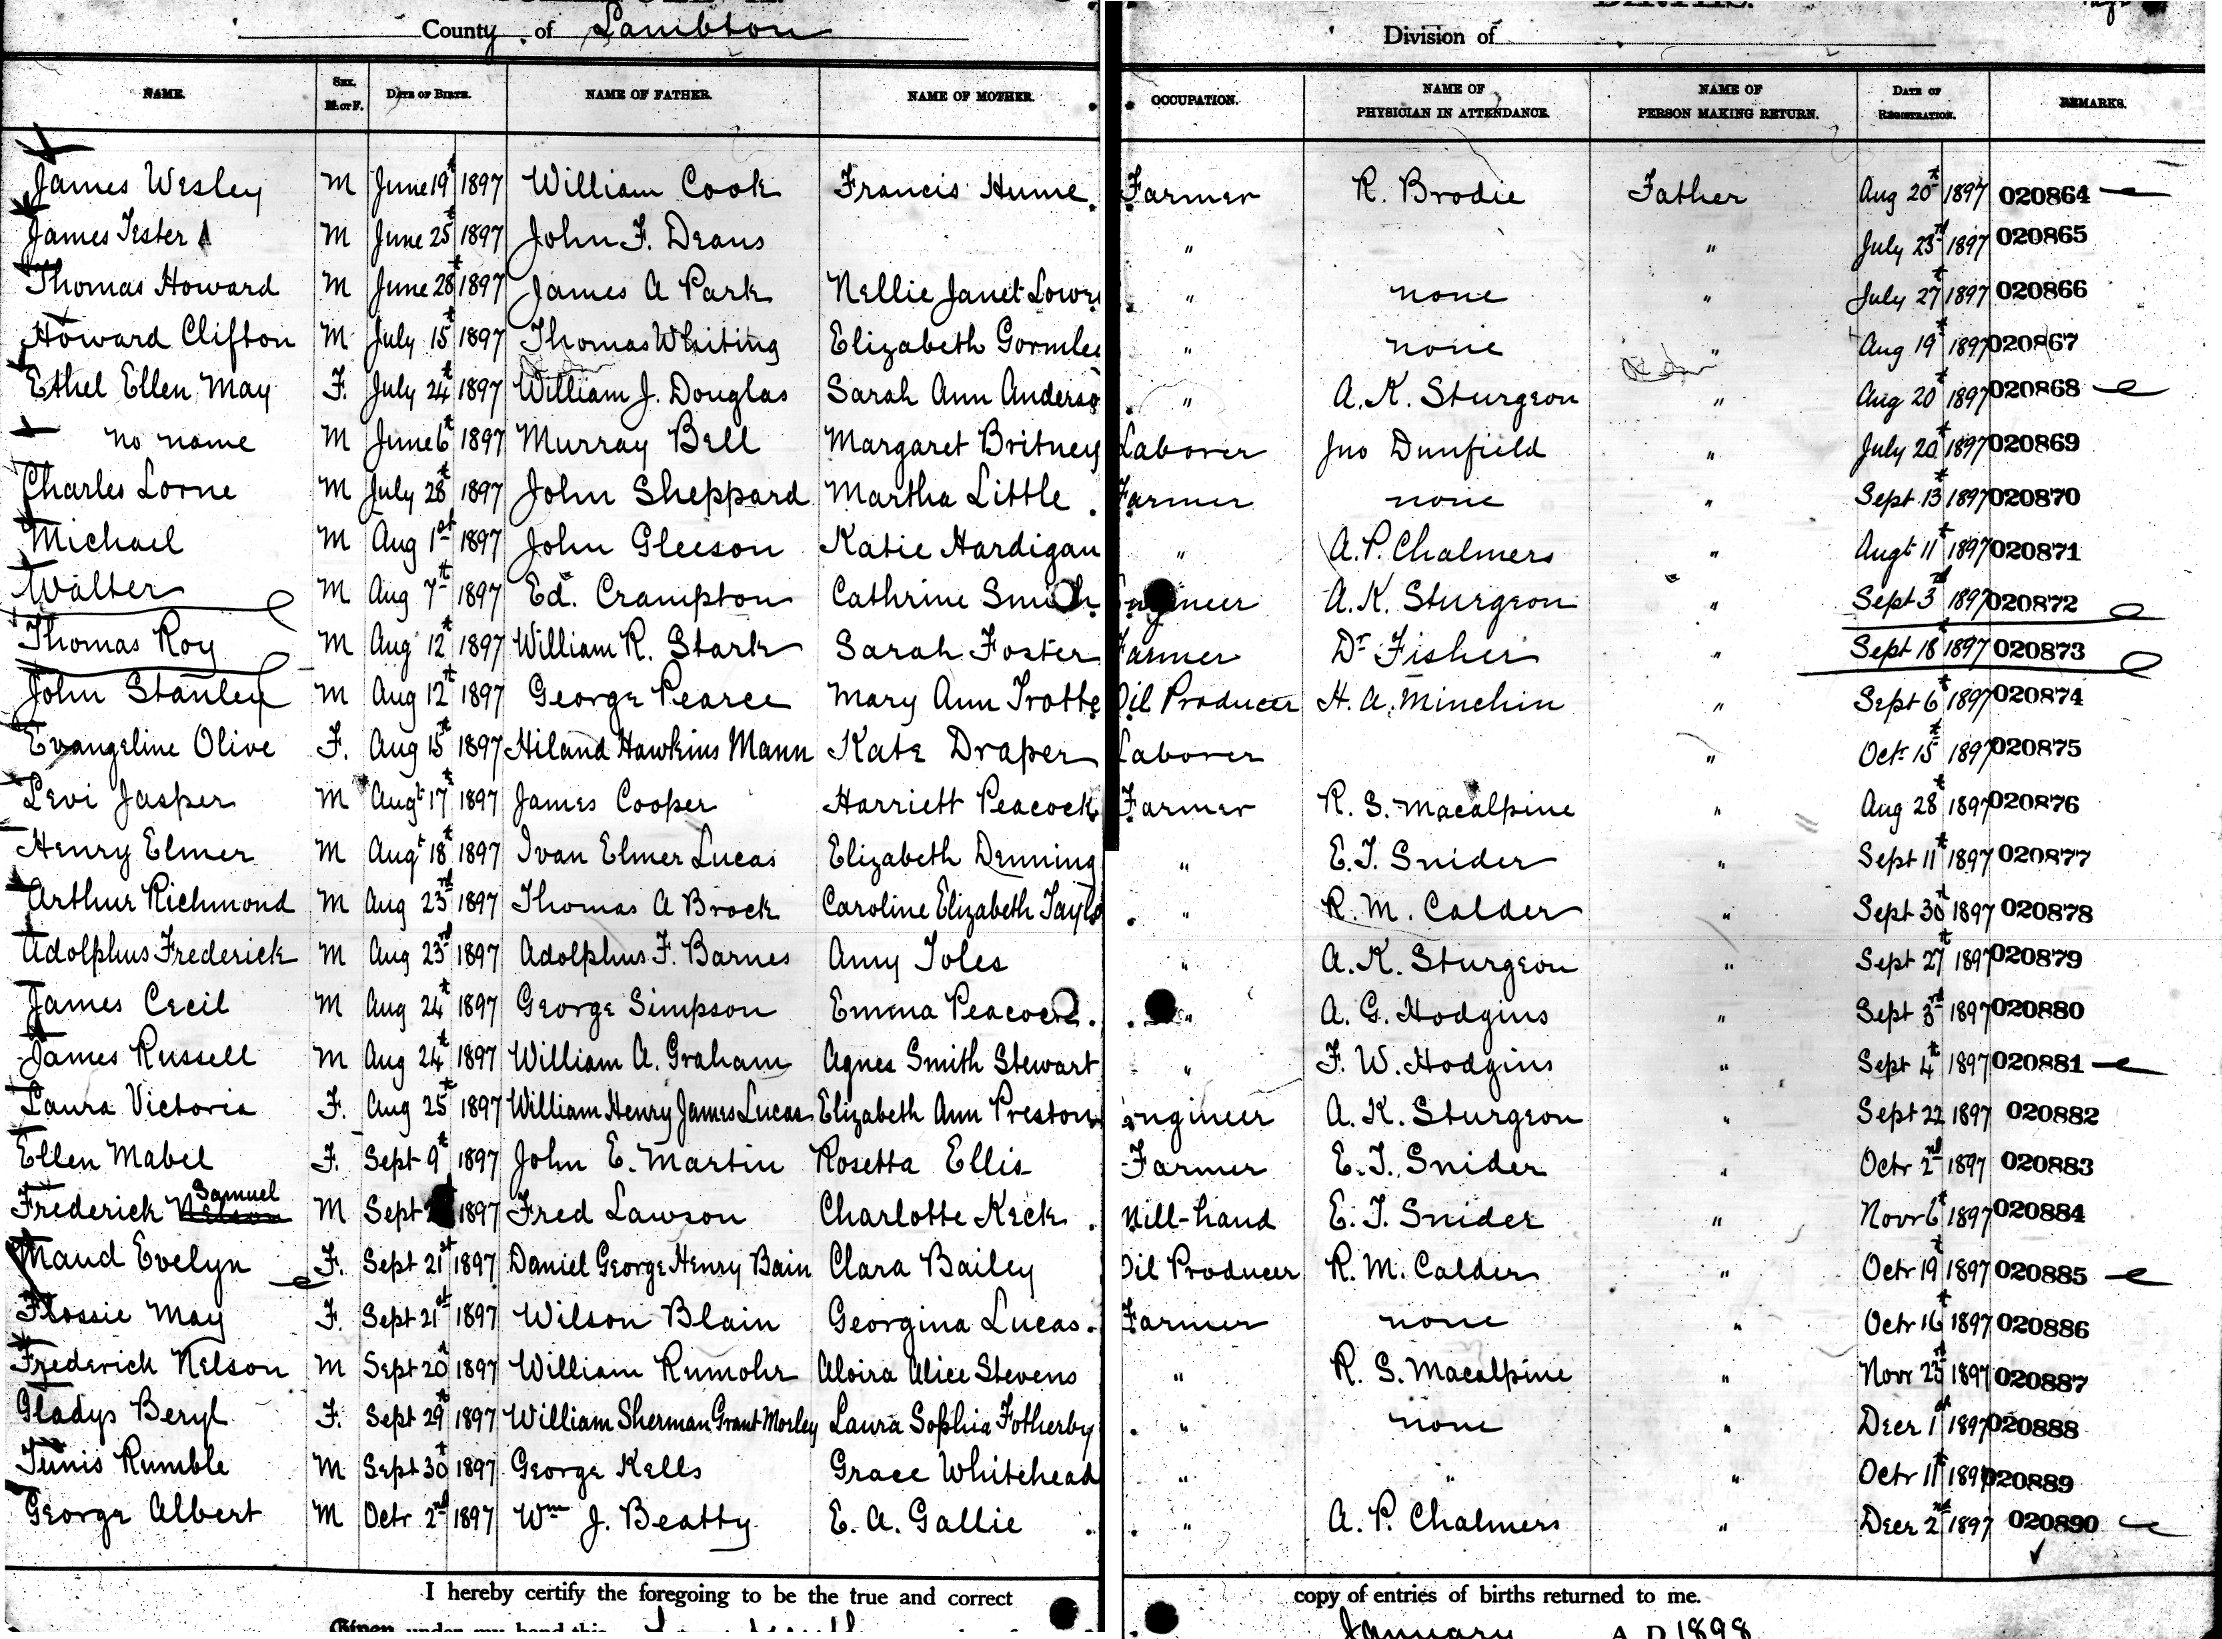 County of Lambton Division of
NAME. SEX. M. or F. DATE OF BIRTH. NAME OF FATHER. NAME OF MOTHER. OCCUPATION. NAME OF PHYSICIAN IN ATTENDANCE. NAME OF PERSON MAKING RETURN. DATE OF REGISTRATION. REMARKS.
James Wesley M June 19t 1897 William Cook Francis Hume Farmer R. Brodie Father Aug 20t 1897 020864
James Tester M June 25t 1897 John F. Deans " " July 23rd 1897 020865
Thomas Howard M June 28t 1897 James A Park Nellie Janet Lowe " none " July 27t 1897 020866
Howard Clifton M July 15t 1897 Thomas Whiting Elizabeth Gormle " none " Aug 19t 1897 020867
Ethel Ellen May F. July 24t 1897 William J. Douglas Sarah Ann Anderso " A. K. Sturgeon " Aug 20t 1897 020868
no name M June 6t 1897 Murray Bell Margaret Britney Laborer Jno Dunfield " July 20t 1897 020869
Charles Lorne M July 28t 1897 John Sheppard Martha Little Farmer none " Sept 13t 1897 020870
Michael M Aug 1st 1897 John Gleeson Katie Hardigan " A. P. Chalmers " Augt 11t 1897 020871
Walter M Aug 7t 1897 Ed. Crampton Cathrine Smith Engineer A. K. Sturgeon " Sept 3rd 1897 020872
Thomas Roy M Aug 12t 1897 William R. Stark Sarah Foster Farmer Dr Fisher " Sept 18t 1897 020873
John Stanley M Aug 12t 1897 George Pearce Mary Ann Trotte Oil Producer H. A. Minchin " Sept 6t 1897 020874
Evangeline Olive F. Aug 15t 1897 Hiland Hawkins Mann Kate Draper Laborer " Oct 15t 1897 020875
Levi Jasper M Augt 17t 1897 James Cooper Harriett Peacock Farmer R. S. Macalpine " Aug 28t 1897 020876
Henry Elmer M Augt 18t 1897 Ivan Elmer Lucas Elizabeth Denning " E. T. Snider " Sept 11t 1897 020877
Arthur Richmond M Aug 23rd 1897 Thomas A Brock Caroline Elizabeth Taylo " R. M. Calder " Sept 30t 1897 020878
Adolphus Frederick M Aug 23rd 1897 Adolphus F. Barnes Amy Toles " A. K. Sturgeon " Sept 27t 1897 020879
James Cecil M Aug 24t 1897 George Simpson Emma Peacock " A. G. Hodgins " Sept 3rd 1897 020880
James Russell M Aug 24t 1897 William A. Graham Agnes Smith Stewart " F. W. Hodgins " Sept 4t 1897 020881
Laura Victoria F. Aug 25t 1897 William Henry James Lucas Elizabeth Ann Preston Engineer A. K. Sturgeon " Sept 22 1897 020882
Ellen Mabel F. Sept 9t 1897 John E. Martin Rosetta Ellis Farmer E. T. Snider " Octr 2nd 1897 020883
Frederick Nelson Samuel M Sept 1897 Fred Lawson Charlotte Keck Mill-hand E. T. Snider " Novr 6t 1897 020884
Maud Evelyn F. Sept 21st 1897 Daniel George Henry Bain Clara Bailey Oil Producer R. M. Calder " Octr 19t 1897 020885
Flossie May F. Sept 21st 1897 Wilson Blain Georgina Lucas Farmer none " Octr 16t 1897 020886
Frederick Nelson M Sept 20t 1897 William Rumohr Aloira Alice Stevens " R. S. Macalpine " Novr 23rd 1897 020887
Gladys Beryl F. Sept 29t 1897 William Sherman Grant Morley Laura Sophia Fotherby " none " Decr 1st 1897 020888
Tunis Rumble M Sept 30t 1897 George Kells Grace Whitehead " " " Octr 11t 1897 020889
George Albert M Octr 2nd 1897 Wm J. Beatty E. A. Gallie " A. P. Chalmers " Decr 2nd 1897 020890
I hereby certify the foregoing to be the true and correct copy of entries of births returned to me.
Given under my hand this January A. D. 1898